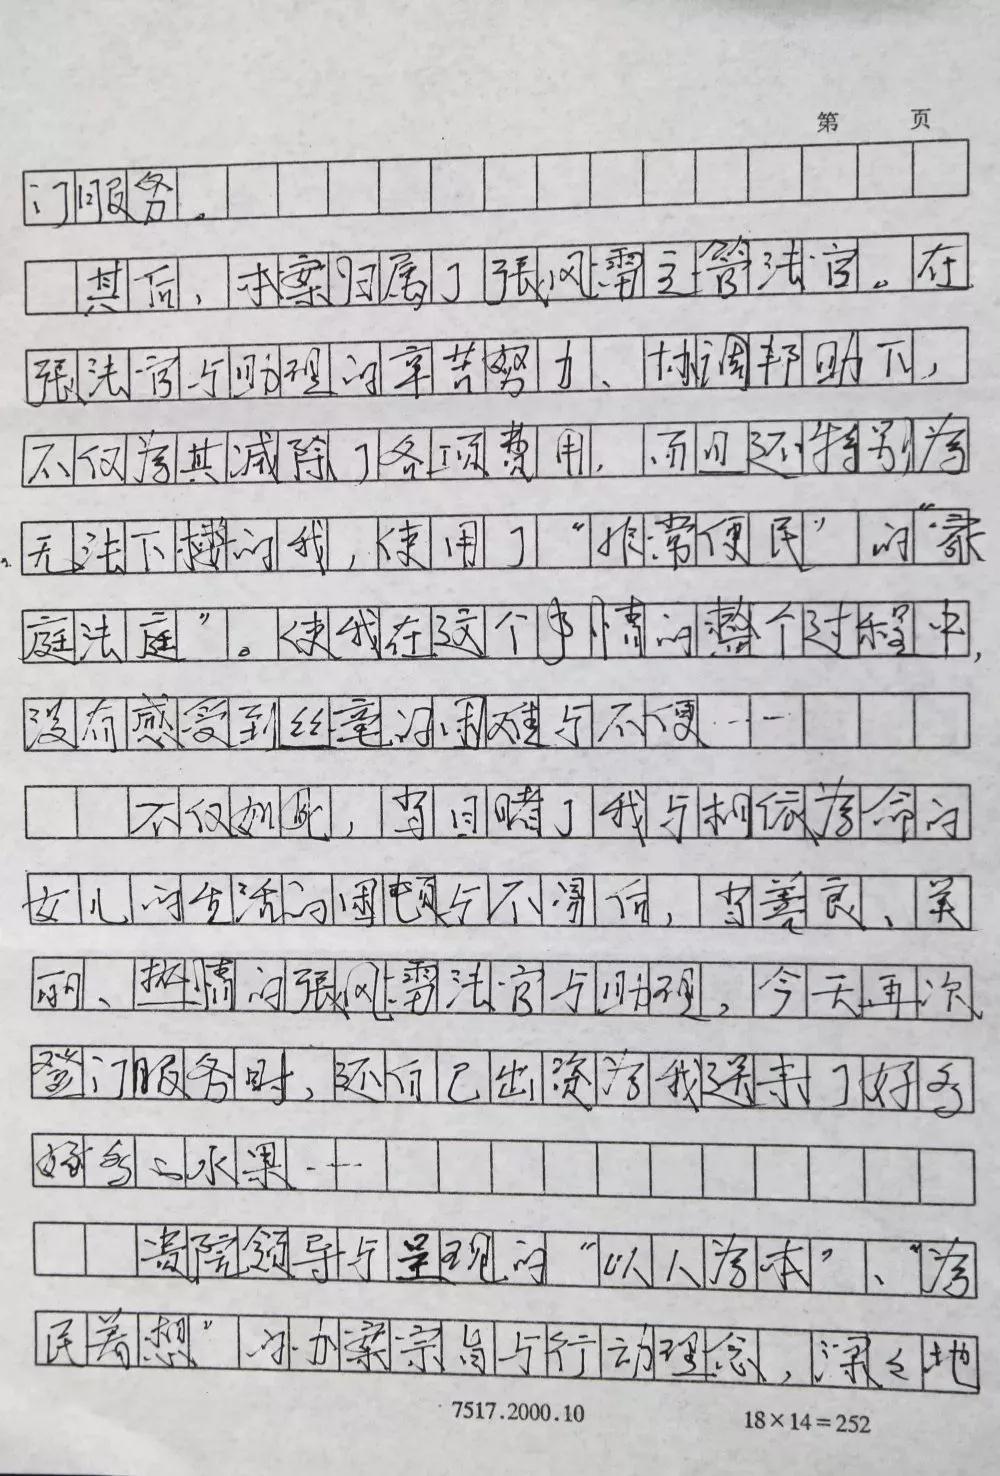 第 页
门服务。
其后，本案归属了張风霈主管法官。在
張法官与助理的辛苦努力、协调帮助下，
不仅為其减除了各项费用，而且还特别為
无法下楼的我，使用了“非常便民”的“家
庭法庭”。使我在这个事情的整个过程中，
没有感受到丝毫的困难与不便……
不仅如此，当目睹了我与相依為命的
女儿的生活的困顿与不易后，当善良、美
丽、热情的張风霈法官与助理，今天再次
登门服务时，还自己出资為我送来了好多
好多的水果……
贵院领导与呈现的“以人為本”、“為
民着想”的办案宗旨与行动理念，深々地
7517.2000.10
18×14=252